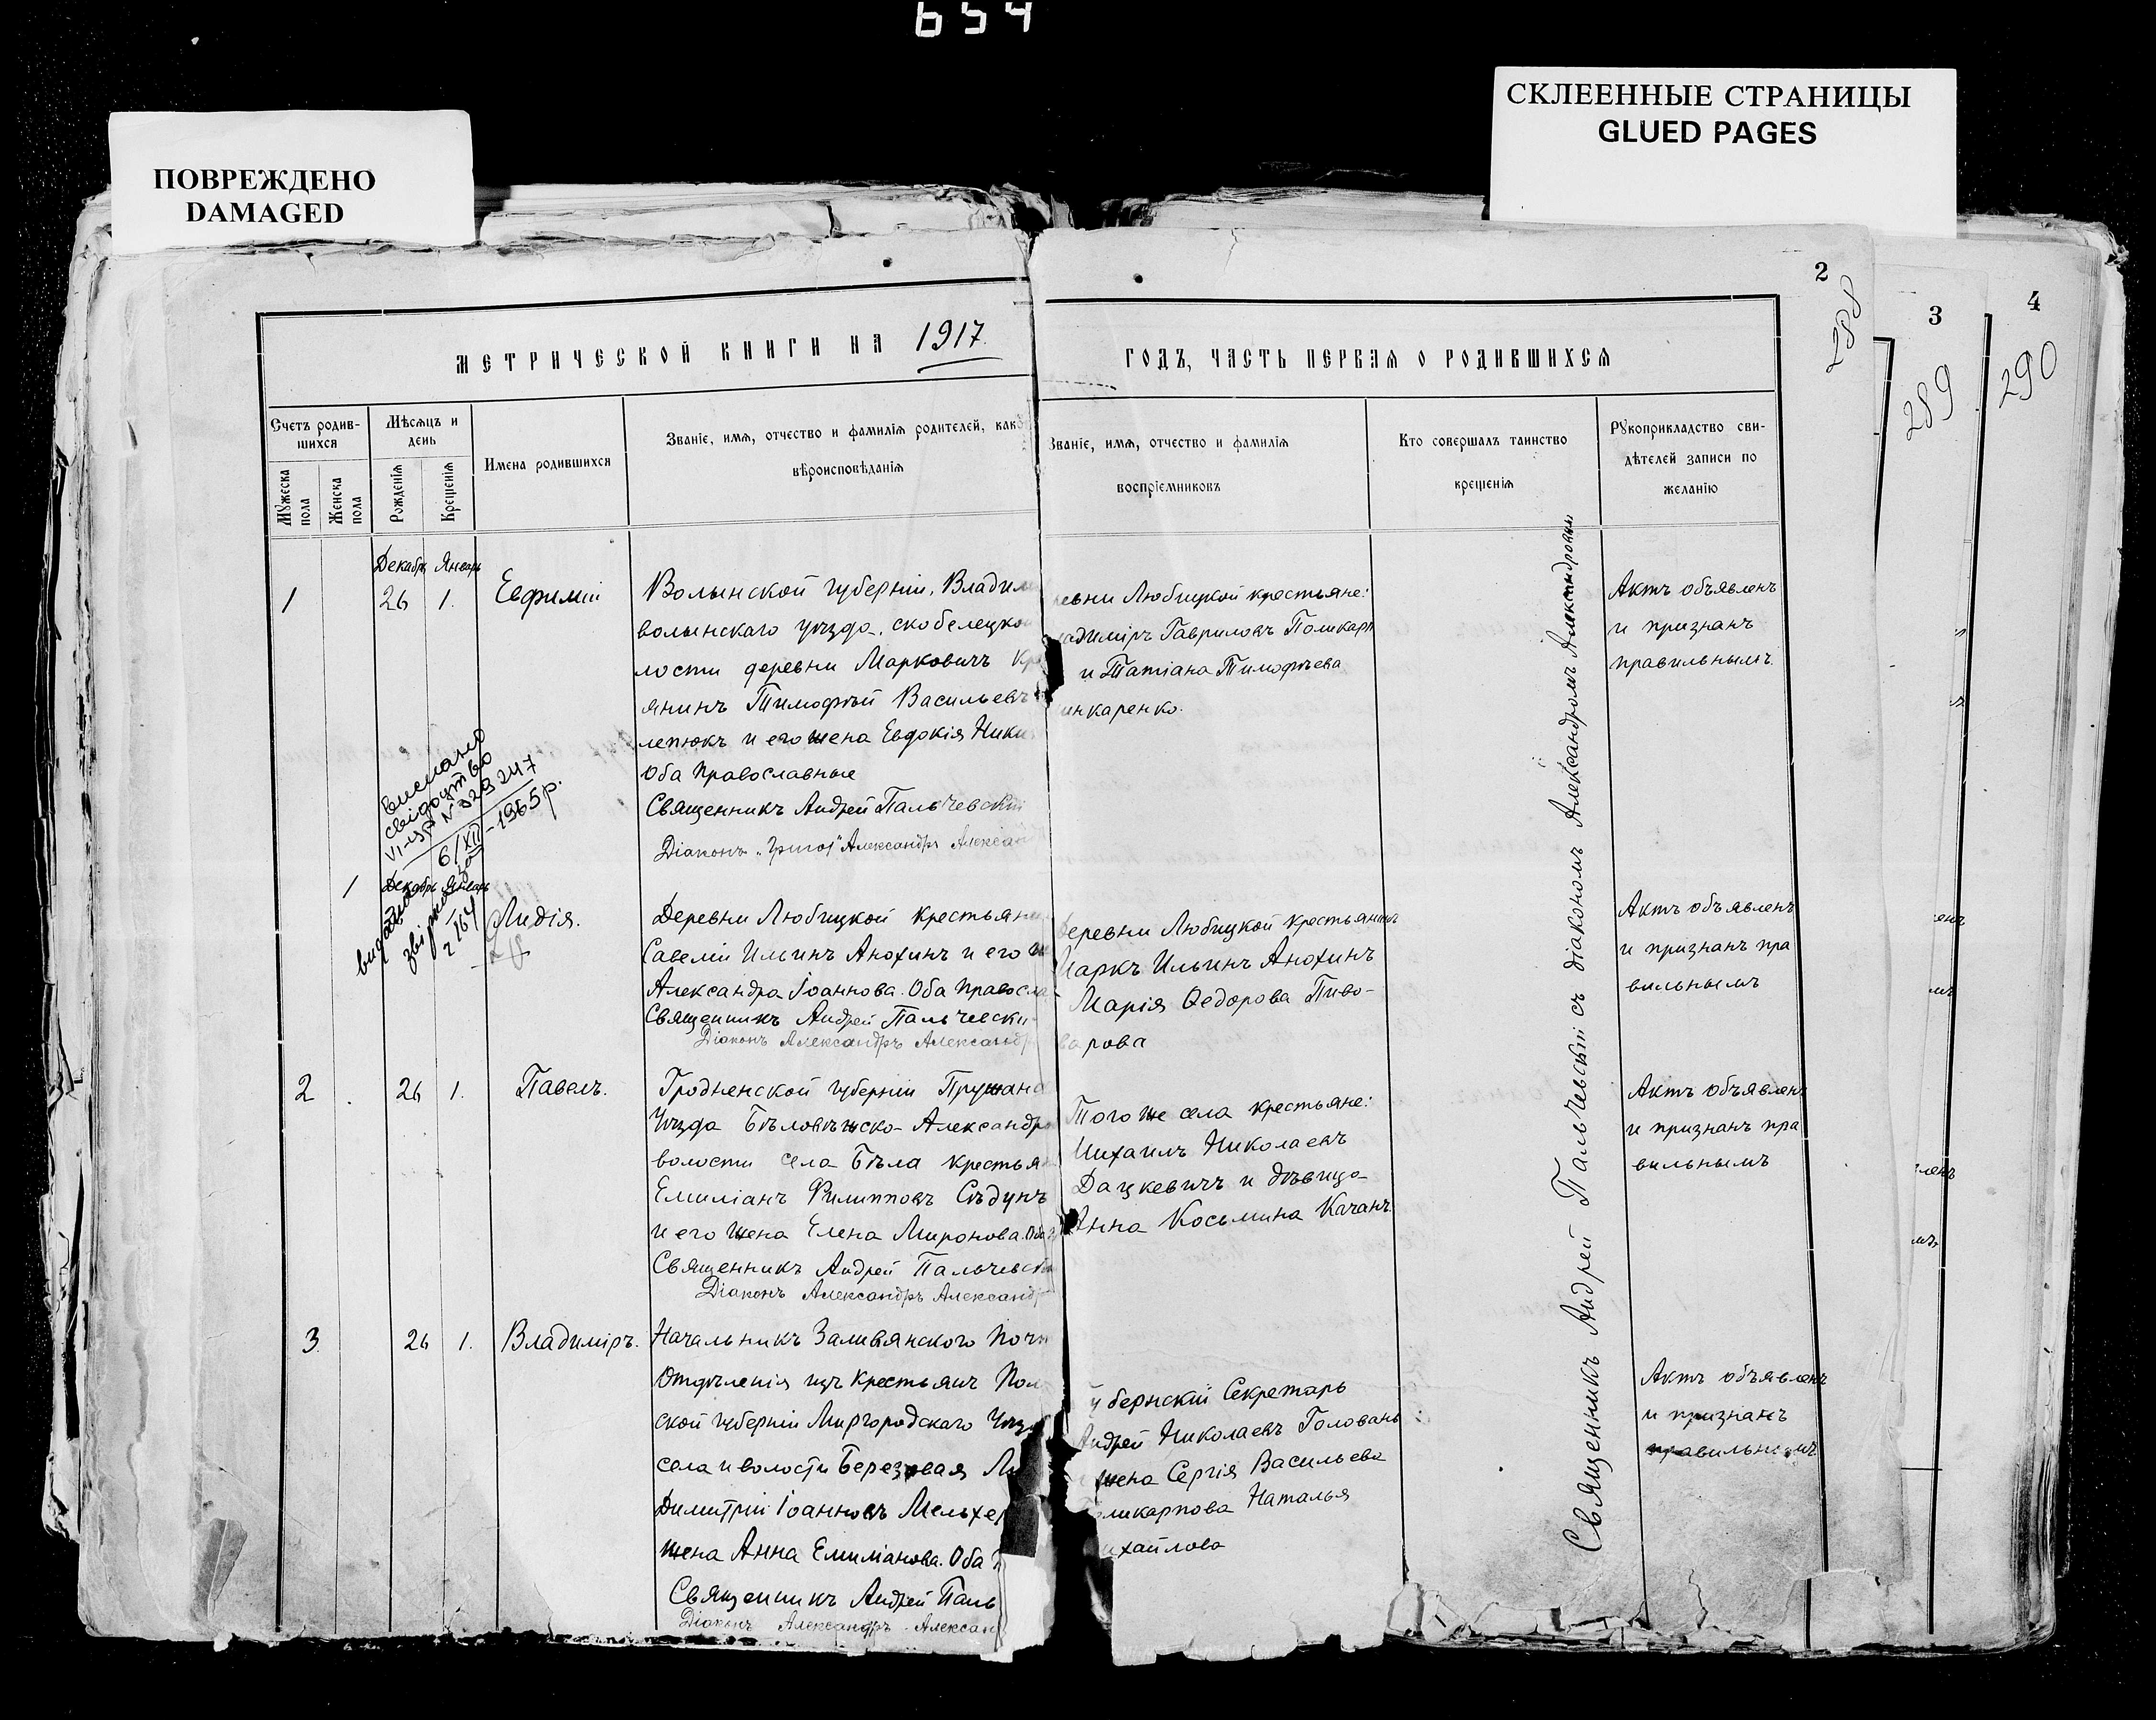 654
ПОВРЕЖДЕНО
DAMAGED
СКЛЕЕННЫЕ СТРАНИЦЫ
GLUED PAGES
2
288
3
289
4
290
МЕТРИЧЕСКОЙ КНИГИ НА 1917.
ГОДЪ, ЧАСТЬ ПЕРВАЯ О РОДИВШИХСЯ
Счетъ родив-
шихся
Мужеска
пола
Женска
пола
Мѣсяцъ и
день
Рожденія
Крещенія
Имена родившихся
Званіе, имя, отчество и фамилія родителей, како
вѣроисповѣданія
Званіе, имя, отчество и фамилія
воспріемниковъ
Кто совершалъ таинство
крещенія
Рукоприкладство сви-
дѣтелей записи по
желанію
Декабрь Январь
1 26 1. Евфимій
Волынской губерніи, Владим
волынскаго уѣзда, скобелецко
лости деревни Марковичъ Кр
янинъ Тимофѣй Васильевъ
лепюкъ и его жена Евдокія Ники
Оба Православные
Священникъ Андрей Пальчевскій
Діаконъ Александръ Алексан
ревни Любицкой крестьяне:
ладиміръ Гавриловъ Поликарп
и Татіана Тимофѣева
инкаренко.
Актъ объявленъ
и признанъ
правильнымъ.
Виписано
свідоцтво
VI-УР № 329247
6/XII-1965р.
видано
за
2164
1 Декабрь Январь
Лидія.
Деревни Любицкой крестьяни
Савелій Ильинъ Анохинъ и его ж
Александра Іоаннова. Оба Правосла
Священникъ Андрей Пальчевски
Діаконъ Александръ Александр
Деревни Любицкой крестьянинъ
Маркъ Ильинъ Анохинъ
Марія Ѳедорова Пиво-
варова
Актъ объявленъ
и признанъ пра
вильнымъ
2 26 1. Павелъ.
Гродненской губерніи Пружан
Уѣзда Бѣловѣжско-Александро
волости села Бѣла крестья
Емиліанъ Филипповъ Сѣдунъ
и его жена Елена Миронова. Оба
Священникъ Андрей Пальчевск
Діаконъ Александръ Александ
Того же села крестьяне:
Михаилъ Николаевъ
Дацкевичъ и дѣвица
Анна Косьмина Качанъ.
Актъ объявлен
и признанъ пра
вильнымъ
3 26 1. Владиміръ.
Начальникъ Заливянского Почт
Отдѣленія изъ крестьянъ Пол
ской губерніи Миргородскаго Уѣзд
села и волости Березовая Лу
Димитрій Іоанновъ Мельхер
жена Анна Емиліанова. Оба
Священникъ Андрей Паль
Діаконъ Александръ Алексан
убернскій Секретарь
Андрей Николаевъ Головань
жена Сергія Васильева
оликарпова Наталья
ихайлова
Актъ объявленъ
и признанъ
правильнымъ
Священникъ Андрей Пальчевскій съ діакономъ Александромъ Александровым